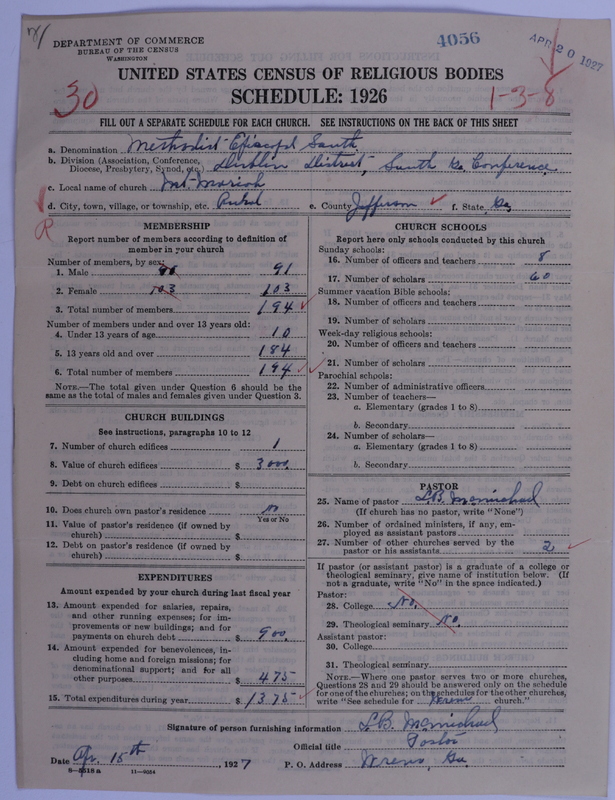 DEPARTMENT OF COMMERCE
BUREAU OF THE CENSUS
WASHINGTON
4056
APR 20 1927
UNITED STATES CENSUS OF RELIGIOUS BODIES
SCHEDULE: 1926
30
1-3-8
FILL OUT A SEPARATE SCHEDULE FOR EACH CHURCH. SEE INSTRUCTIONS ON THE BACK OF THIS SHEET
a. Denomination Methodist Episcopal South
b. Division (Association, Conference, Diocese, Presbytery, Synod, etc.) Dublin District, South Ga Conference
c. Local name of church Mt. Moriah
d. City, town, village, or township, etc. Rural e. County Jefferson f. State Ga
R
MEMBERSHIP
Report number of members according to definition of
member in your church
Number of members, by sex:
1. Male 91
2. Female 103 103
3. Total number of members 194
Number of members under and over 13 years old:
4. Under 13 years of age 10
5. 13 years old and over 184
6. Total number of members 194
NOTE.—The total given under Question 6 should be the
same as the total of males and females given under Question 3.
CHURCH BUILDINGS
See instructions, paragraphs 10 to 12
7. Number of church edifices 1
8. Value of church edifices $ 3000
9. Debt on church edifices $
10. Does church own pastor's residence No
Yes or No
11. Value of pastor's residence (if owned by
church) $
12. Debt on pastor's residence (if owned by
church) $
EXPENDITURES
Amount expended by your church during last fiscal year
13. Amount expended for salaries, repairs,
and other running expenses; for im-
provements or new buildings; and for
payments on church debt $ 900
14. Amount expended for benevolences, in-
cluding home and foreign missions; for
denominational support; and for all
other purposes $ 475
15. Total expenditures during year $ 1375
CHURCH SCHOOLS
Report here only schools conducted by this church
Sunday schools:
16. Number of officers and teachers 8
17. Number of scholars 60
Summer vacation Bible schools:
18. Number of officers and teachers
19. Number of scholars
Week-day religious schools:
20. Number of officers and teachers
21. Number of scholars
Parochial schools:
22. Number of administrative officers
23. Number of teachers—
a. Elementary (grades 1 to 8)
b. Secondary
24. Number of scholars—
a. Elementary (grades 1 to 8)
b. Secondary
PASTOR
25. Name of pastor L.B. McMichael
(If church has no pastor, write "None")
26. Number of ordained ministers, if any, em-
ployed as assistant pastors
27. Number of other churches served by the
pastor or his assistants 2
If pastor (or assistant pastor) is a graduate of a college or
theological seminary, give name of institution below. (If
not a graduate, write "No" in the space indicated.)
Pastor:
28. College No.
29. Theological seminary No.
Assistant pastor:
30. College
31. Theological seminary
NOTE.—Where one pastor serves two or more churches,
Questions 28 and 29 should be answered only on the schedule
for one of the churches; on the schedules for the other churches,
write "See schedule for Wrens church."
Signature of person furnishing information L.B. McMichael
Official title Pastor
Date Apr. 15th, 1927 P. O. Address Wrens, Ga.
8—5518 a 11—9034